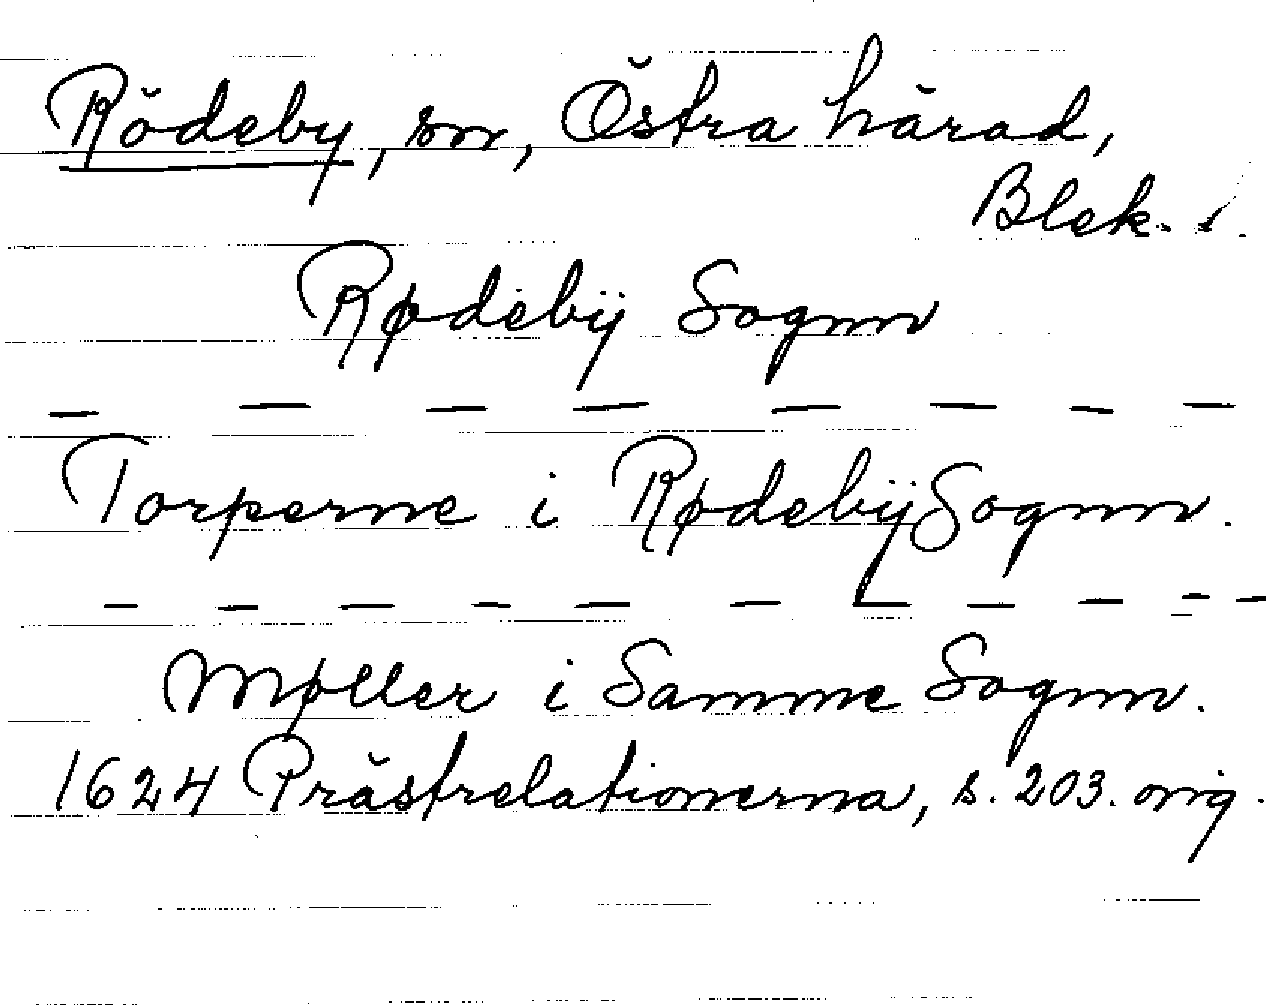 Rödeby, sn, Östra härad,
Blek. l.
Rødebÿ Sognn
— — — — — — — —
Torperne i Rødebÿ Sognn.
— — — — — — — — — — —
Møller i Samme Sognn.
1624 Prästrelationerna, s. 203. orig.